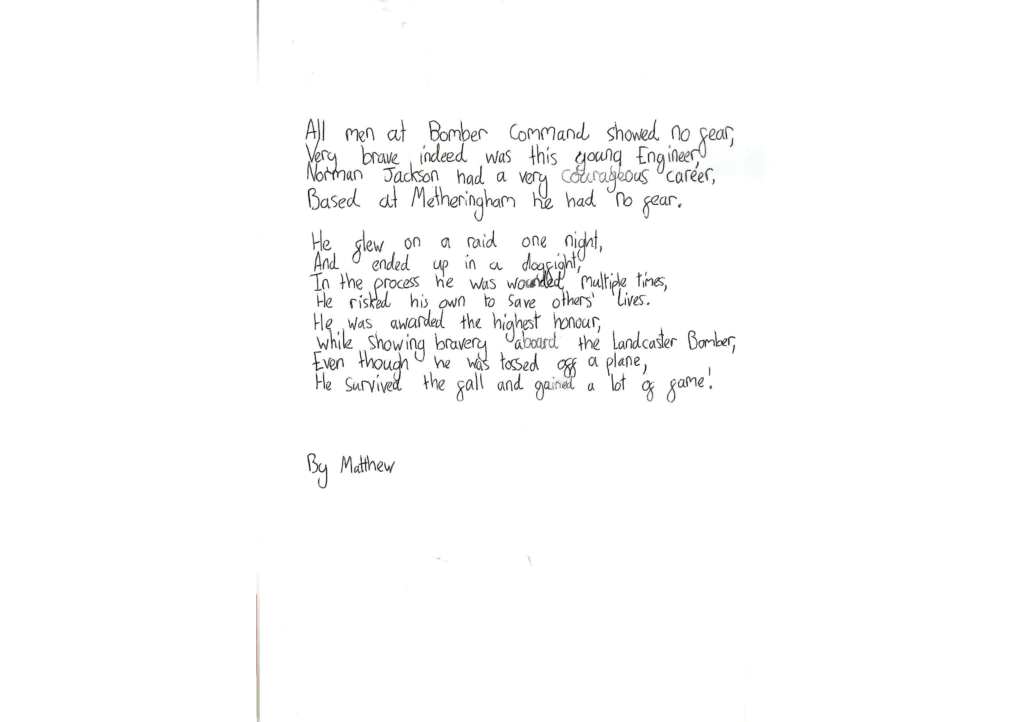 All men at Bomber Command showed no fear,
Very brave indeed was this young Engineer,
Norman Jackson had a very courageous career,
Based at Metheringham he had no fear.
He flew on a raid one night,
And ended up in a dogfight,
In the process he was wounded multiple times,
He risked his own to save others' lives.
He was awarded the highest honour,
While showing bravery aboard the Landcaster Bomber,
Even though he was tossed off a plane,
He survived the fall and gained a lot of fame!
By Matthew